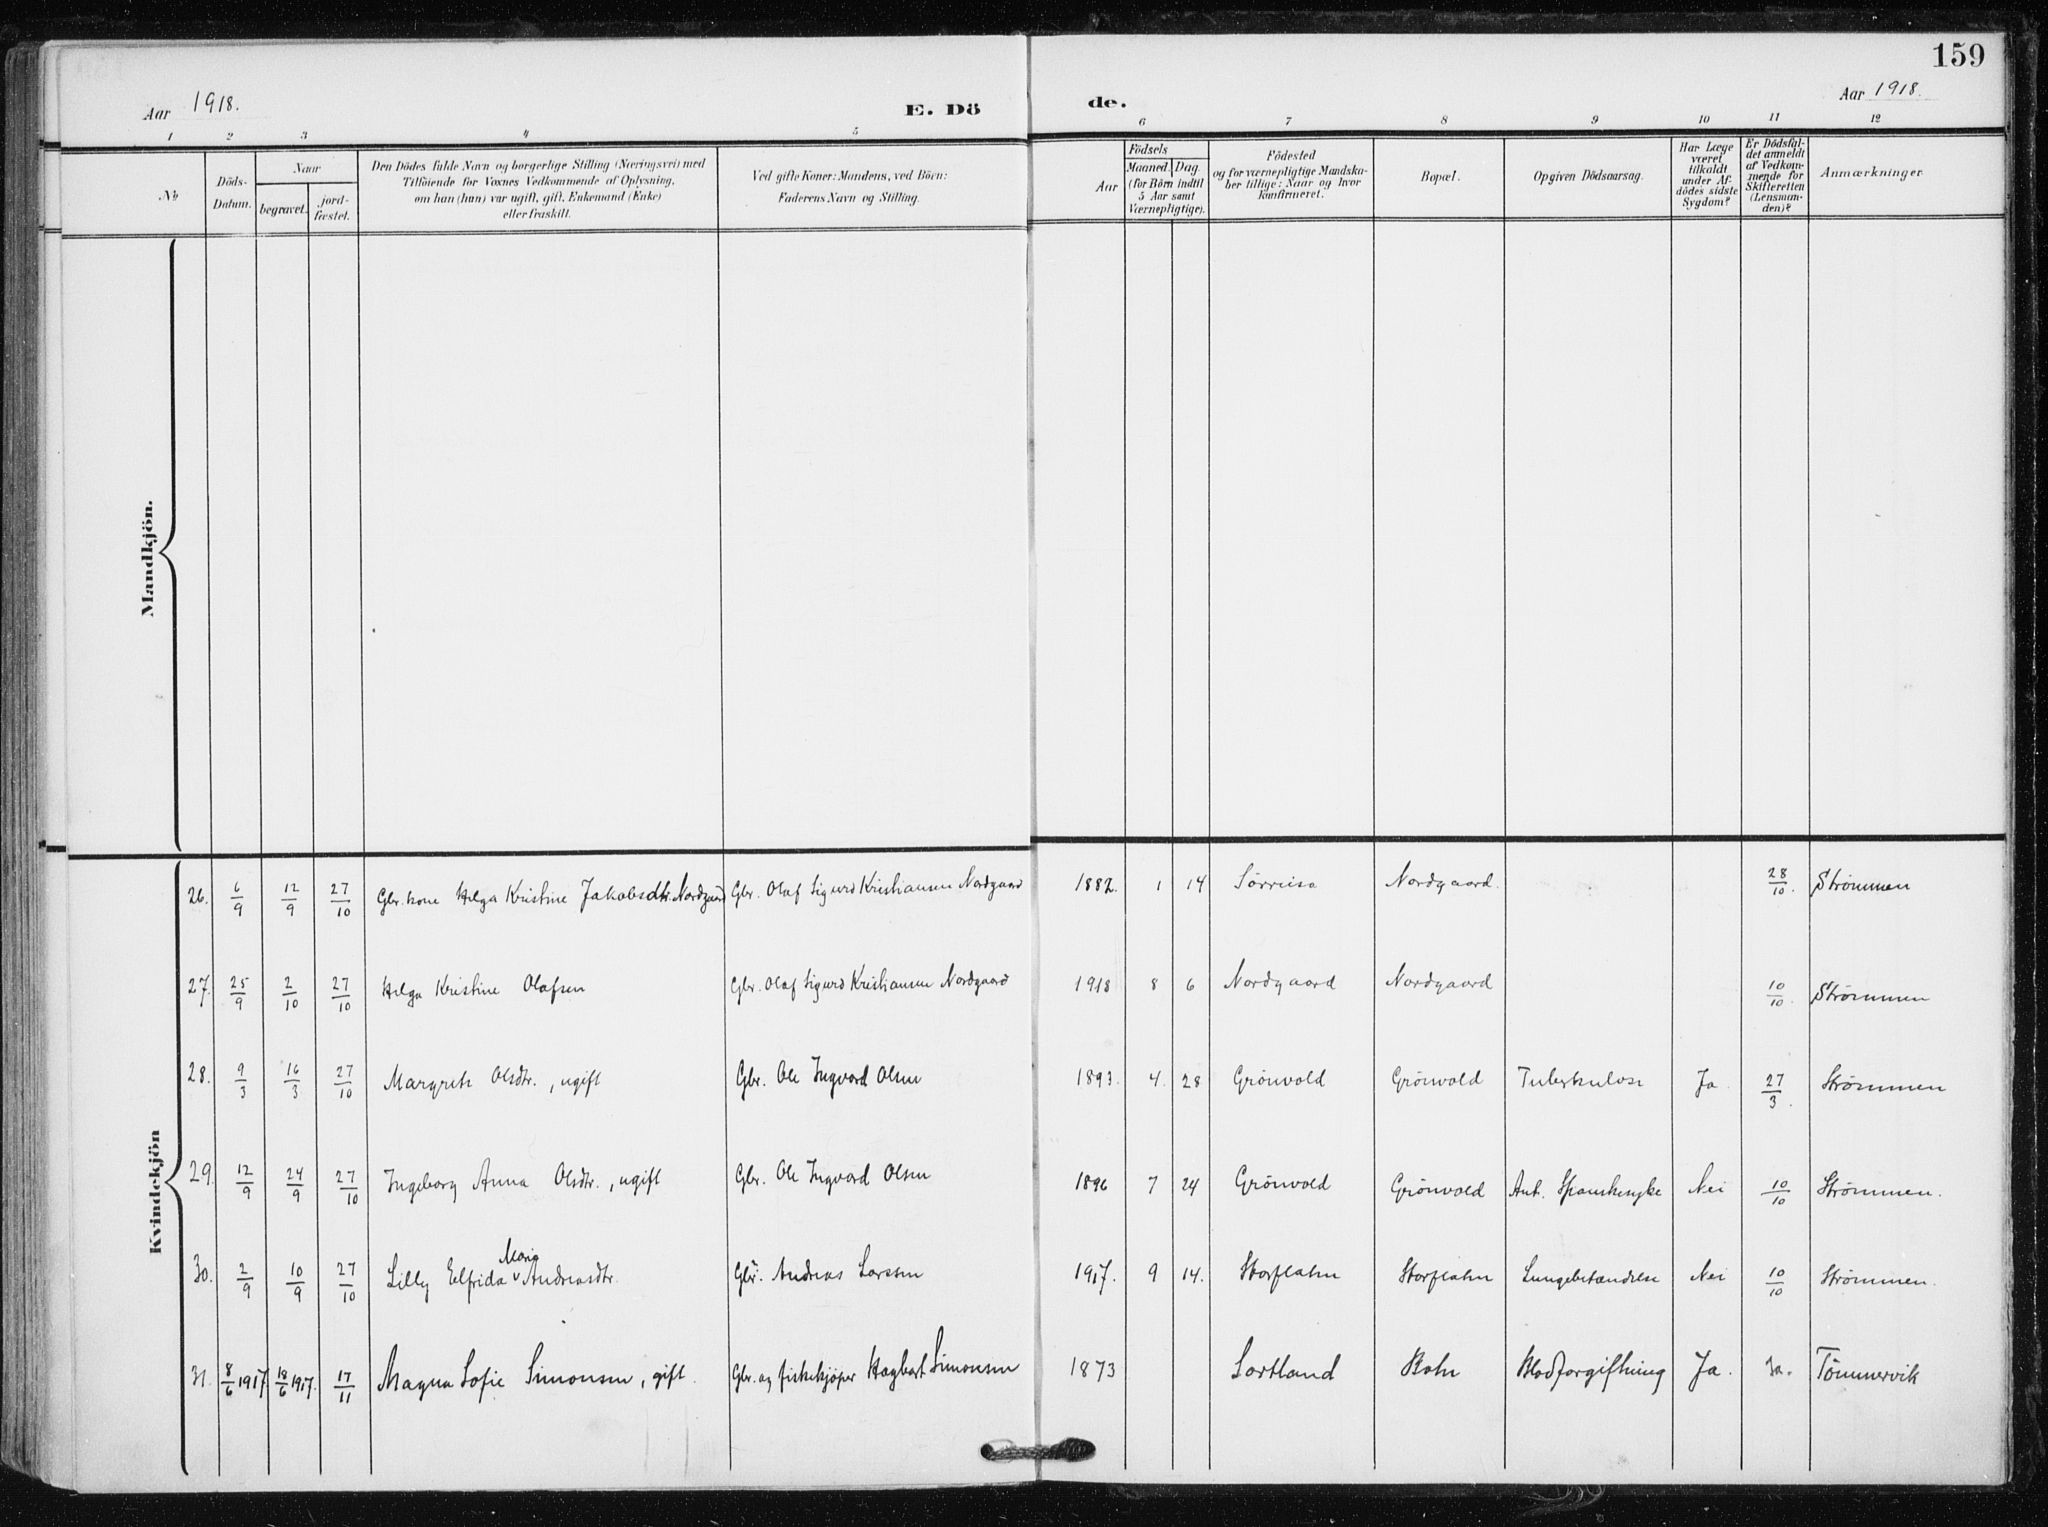 159
Aar 1918.
E. Dö
de.
Aar 1918.
1 2 3 4 5 6 7 8 9 10 11 12
No
Döds-
Datum.
Naar
begravet.
jord-
fæstet.
Den Dödes fulde Navn og borgerlige Stilling (Næringsvei) med
Tilföiende for Voxnes Vedkommende af Oplysning,
om han (hun) var ugift, gift, Enkemand (Enke)
eller fraskilt.
Ved gifte Koner: Mandens, ved Börn:
Faderens Navn og Stilling.
Födsels
Aar
Maaned. Dag.
(for Börn indtil
5 Aar samt
Værnepligtige).
Födested
og for værnepligtige Mandska-
ber tillige: Naar og hvor
konfirmeret.
Bopæl.
Opgiven Dödsaarsag.
Har Læge
været
tilkaldt
under Af-
dödes sidste
Sygdom?
Er Dödsfal-
det anmeldt
af Vedkom-
mende for
Skifteretten
(Lensman-
den)?
Anmærkninger
Mandkjön.
Kvindekjön
26. 6/9 12/9 27/10 Gbr. kone Helga Kristine Jakobsdtr. Nordgaard Gbr. Olaf Sigurd Kristiansen Nordgaard 1882. 1 14 Sørreisa Nordgaard. 28/10. Strømmen
27. 25/9 2/10 27/10 Helga Kristine Olafsen Gbr. Olaf Sigurd Kristiansen Nordgaard 1918 8 6 Nordgaard Nordgaard 10/10. Strømmen
28. 9/3 16/3 27/10 Margrete Olsdtr., ugift Gbr. Ole Ingvard Olsen 1893. 4. 28 Grönvold Grönvold Tuberkulose Ja 27/3. Strømmen
29. 12/9 24/9 27/10 Ingeborg Anna Olsdtr., ugift Gbr. Ole Ingvard Olsen 1896 7 24 Grönvold Grönvold Ant. Spanskesyke Nei 10/10 Strømmen.
30. 2/9 10/9 27/10 Lilly Elfrida Maria Andreasdtr. Gbr. Andreas Larssen 1917. 9 14. Storslahn Storslahn Lungebetændelse Nei 10/10 Strømmen.
31. 8/6 1917 18/6 1917. 17/11 Magna Sofie Simonsen, gift. Gbr. og fiskekjøper Hagbart Simonsen 1873 Sortland Rohn Blodforgiftning Ja. Ja. Tömmervik